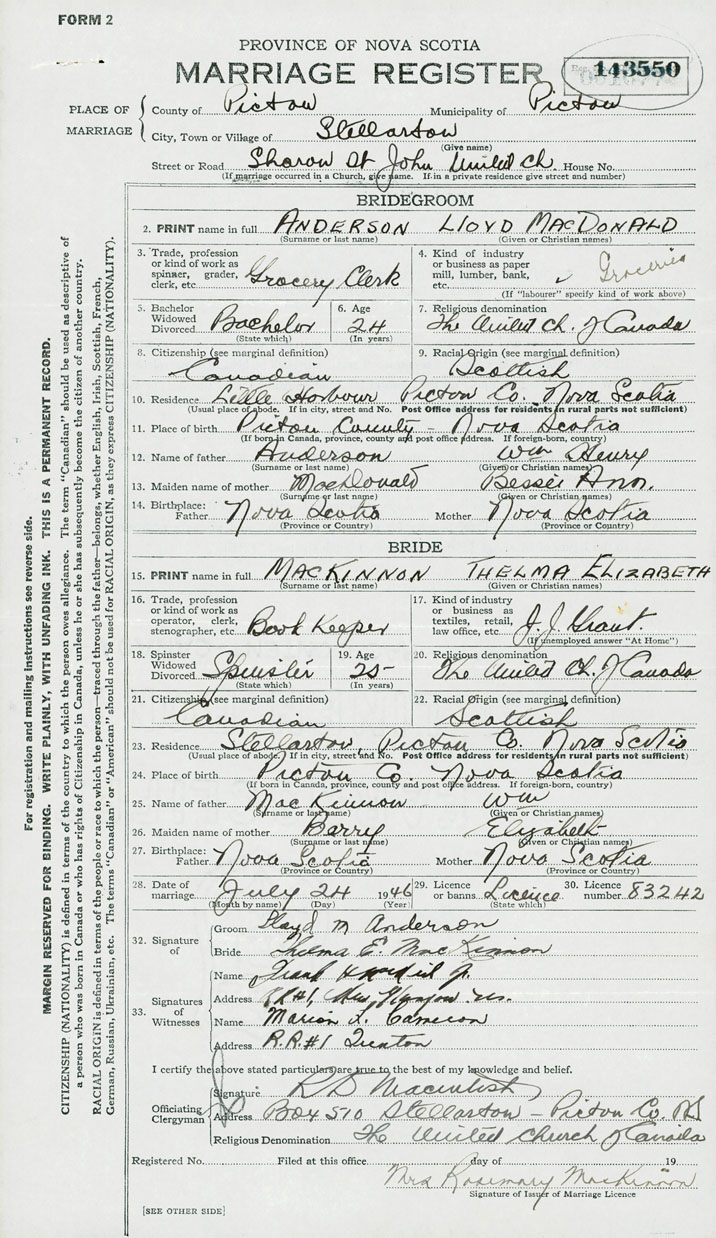 FORM 2
PROVINCE OF NOVA SCOTIA
MARRIAGE REGISTER
143550
PLACE OF MARRIAGE
County of Pictou Municipality of Pictou
City, Town or Village of Stellarton
(Give name)
Street or Road Sharon St John United Ch. House No.
(If marriage occurred in a Church, give name. If in a private residence give street and number)
BRIDEGROOM
2. PRINT name in full ANDERSON LLOYD MACDONALD
(Surname or last name) (Given or Christian names)
3. Trade, profession or kind of work as spinner, grader, clerk, etc. Grocery Clerk
4. Kind of industry or business as paper mill, lumber, bank, etc. Groceries
(If "labourer" specify kind of work above)
5. Bachelor Widowed Divorced Bachelor
(State which)
6. Age 24
(In years)
7. Religious denomination
The United Ch. of Canada
8. Citizenship (see marginal definition)
Canadian
9. Racial Origin (see marginal definition)
Scottish
10. Residence Little Harbour Pictou Co. Nova Scotia
(Usual place of abode. If in city, street and No. Post Office address for residents in rural parts not sufficient)
11. Place of birth Pictou County - Nova Scotia
(If born in Canada, province, county and post office address. If foreign-born, country)
12. Name of father Anderson Wm Henry
(Surname or last name) (Given or Christian names)
13. Maiden name of mother MacDonald Bessie Ann.
(Surname or last name) (Given or Christian names)
14. Birthplace: Father Nova Scotia Mother Nova Scotia
(Province or Country) (Province or Country)
BRIDE
15. PRINT name in full MACKINNON THELMA ELIZABETH
(Surname or last name) (Given or Christian names)
16. Trade, profession or kind of work as operator, clerk, stenographer, etc. Book Keeper
17. Kind of industry or business as textiles, retail, law office, etc. J. J. Grant.
(If unemployed answer "At Home")
18. Spinster Widowed Divorced Spinster
(State which)
19. Age 25
(In years)
20. Religious denomination
The United Ch. of Canada
21. Citizenship (see marginal definition)
Canadian
22. Racial Origin (see marginal definition)
Scottish
23. Residence Stellarton, Pictou Co. Nova Scotia
(Usual place of abode. If in city, street and No. Post Office address for residents in rural parts not sufficient)
24. Place of birth Pictou Co. Nova Scotia
(If born in Canada, province, county and post office address. If foreign-born, country)
25. Name of father MacKinnon Wm
(Surname or last name) (Given or Christian names)
26. Maiden name of mother Barry Elizabeth
(Surname or last name) (Given or Christian names)
27. Birthplace: Father Nova Scotia Mother Nova Scotia
(Province or Country) (Province or Country)
28. Date of marriage July 24 1946
(Month by name) (Day) (Year)
29. Licence or banns Licence
(State which)
30. Licence number 83242
32. Signature of
Groom Lloyd M Anderson
Bride Thelma E. MacKinnon
33. Signatures of Witnesses
Name Frank Jr.
Address RR#1, New Glasgow N.S.
Name Marion L. Cameron
Address R.R.#1 Trenton
I certify the above stated particulars are true to the best of my knowledge and belief.
Officiating Clergyman
Signature R D Macintosh
Address Box 510 Stellarton - Pictou Co. NS
Religious Denomination The United Church of Canada
Registered No. Filed at this office day of 19
Mrs Rosemary MacKinnon
Signature of Issuer of Marriage Licence
[SEE OTHER SIDE]
For registration and mailing instructions see reverse side.
MARGIN RESERVED FOR BINDING. WRITE PLAINLY, WITH UNFADING INK. THIS IS A PERMANENT RECORD.
CITIZENSHIP (NATIONALITY) is defined in terms of the country to which the person owes allegiance. The term "Canadian" should be used as descriptive of
a person who was born in Canada or who has rights of Citizenship in Canada, unless he or she has subsequently become the citizen of another country.
RACIAL ORIGIN is defined in terms of the people or race to which the person—traced through the father—belongs, whether English, Irish, Scottish, French,
German, Russian, Ukrainian, etc. The terms "Canadian" or "American" should not be used for RACIAL ORIGIN, as they express CITIZENSHIP (NATIONALITY).